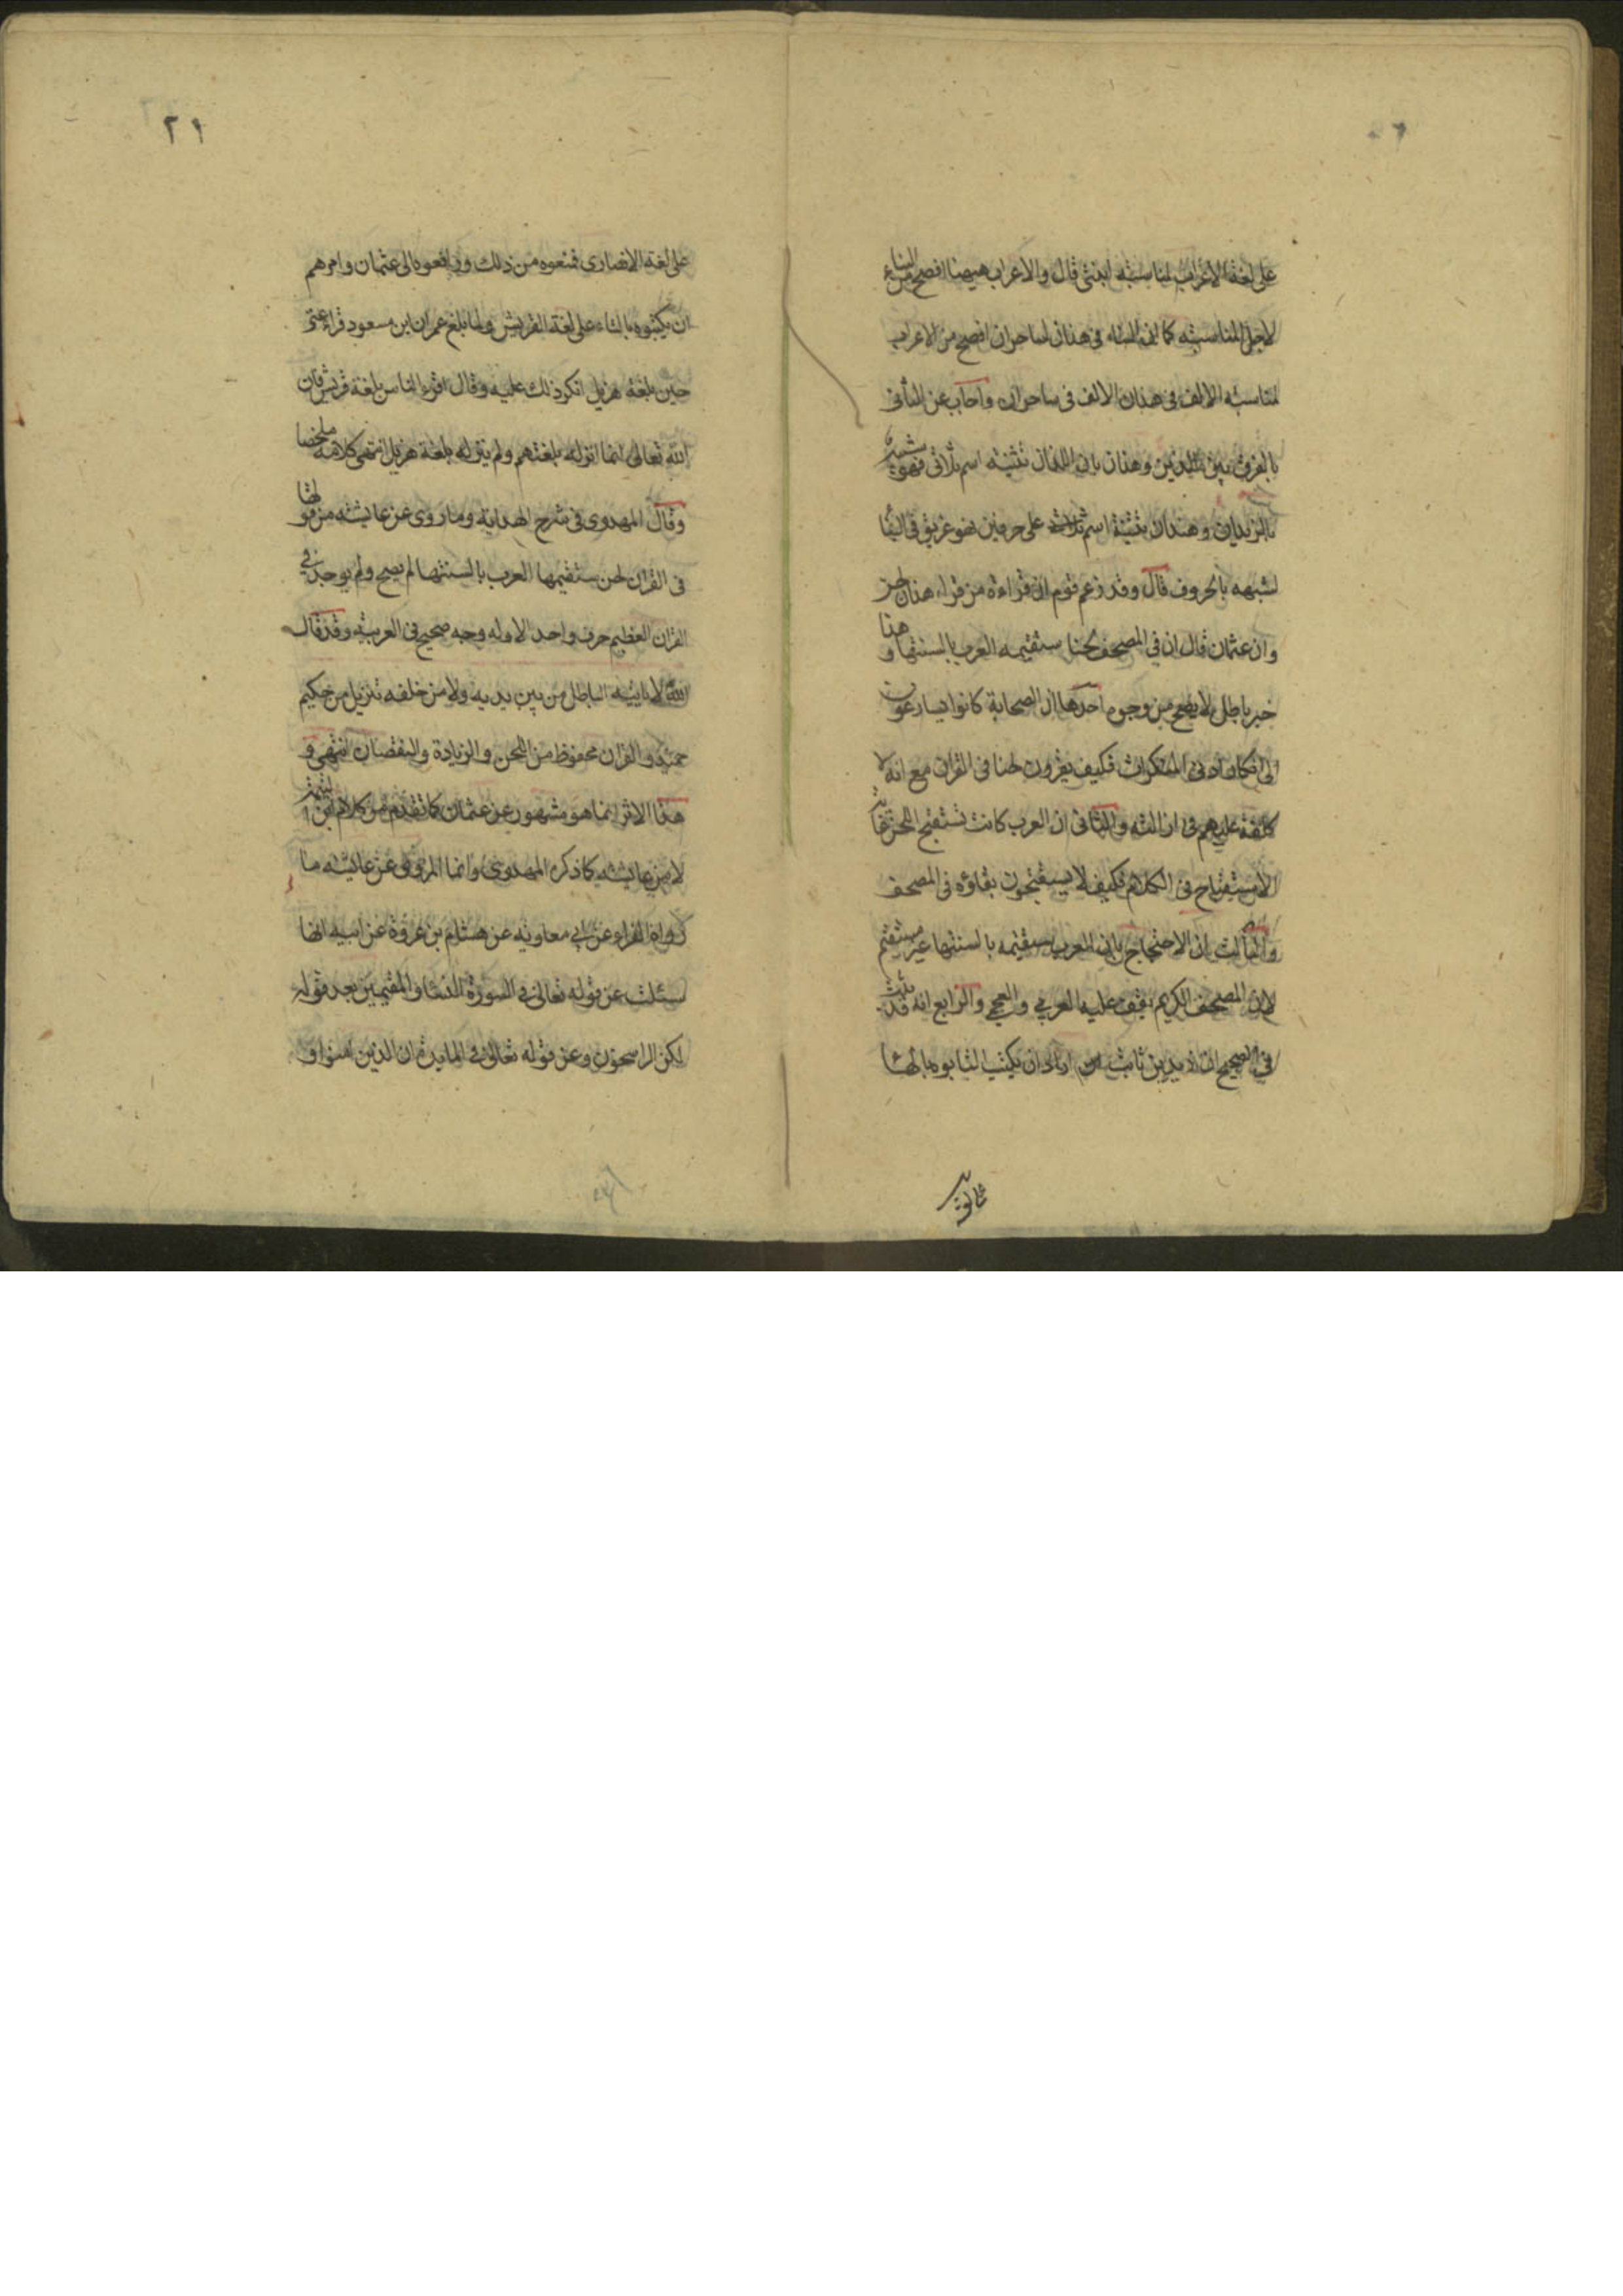 على لغة الاعراب لمناسبة ابنتى قال والاعراب هيهنا افصح من البناء
لاجل المناسبة كما ان البناء فى هذان لساحران افصح من الاعراب
لمناسبة الالف فى هذان الالف فى ساحران واجاب عن الثانى
بالفرق بين اللذين وهذان بان اللذان تثنية اسم ثلاثى فهو شبيه
بالزيدان وهذان تثنية اسم على حرفين فهو عريق فى البنا
لشبهه بالحروف قال وقد زعم قوم ان قراءة من قراء هذان لحن
وان عثمان قال ان في المصحف لحنا ستقيمه العرب بالسنتها وهذا
خبر باطل لا يصح من وجوه احدها ان الصحابة كانوا يسارعون
الى انكار ادنى المنكرات فكيف يقرون لحنا فى القران مع انه لا
كلفة عليهم فى ازالته والثانى ان العرب كانت تستقبح اللحن غاية
الاستقباح فى الكلام فكيف لا يستقبحون بقاؤه فى المصحف
والثالث ان الاحتجاج بان العرب ستقيمه بالسنتها غير مستقيم
لان المصحف الكريم يقف عليه العربي والعجمي والرابع انه قد ثبت
في الصحيح ان زيد بن ثابت اراد ان يكتب التابوه بالها
٢١
على لغة الانصارى فمنعوه من ذلك ورافعوه الى عثمان وامرهم
ان يكتبوه بالتاء على لغة القريش ولما بلغ عمر ان ابن مسعود قراء عتى
حين بلغة هزيل انكر ذلك عليه وقال اقرء الناس بلغة قريش فان
الله تعالى انما انزله بلغتهم ولم ينزله بلغة هزيل انتهى كلامه ملخصا
وقال المهدوى فى شرح الهداية وما روى عن عايشه من قولها
فى القران لحن ستقيمها العرب بالسنتها لم يصح ولم يوجد في
القران العظيم حرف واحد الا وله وجه صحيح فى العربية وقد قال
الله لا ياتيه الباطل من بين يديه ولا من خلفه تنزيل من حكيم
حميد والقران محفوظ من اللحن والزيادة والنقصان انتهى و
هذا الاثر انما هو مشهور عن عثمان كما تقدم من كلام ابن
لا من عايشه كما ذكره المهدوى وانما المروى عن عايشه ما
رواه الفراء عن ابي معاوية عن هشام بن عروة عن ابيه انها
سئلت عن قوله تعالى في السورة النسا والمقيمين بعد قوله
لكن الراسخون وعن قوله تعالى في المايدة ان الذين امنوا و